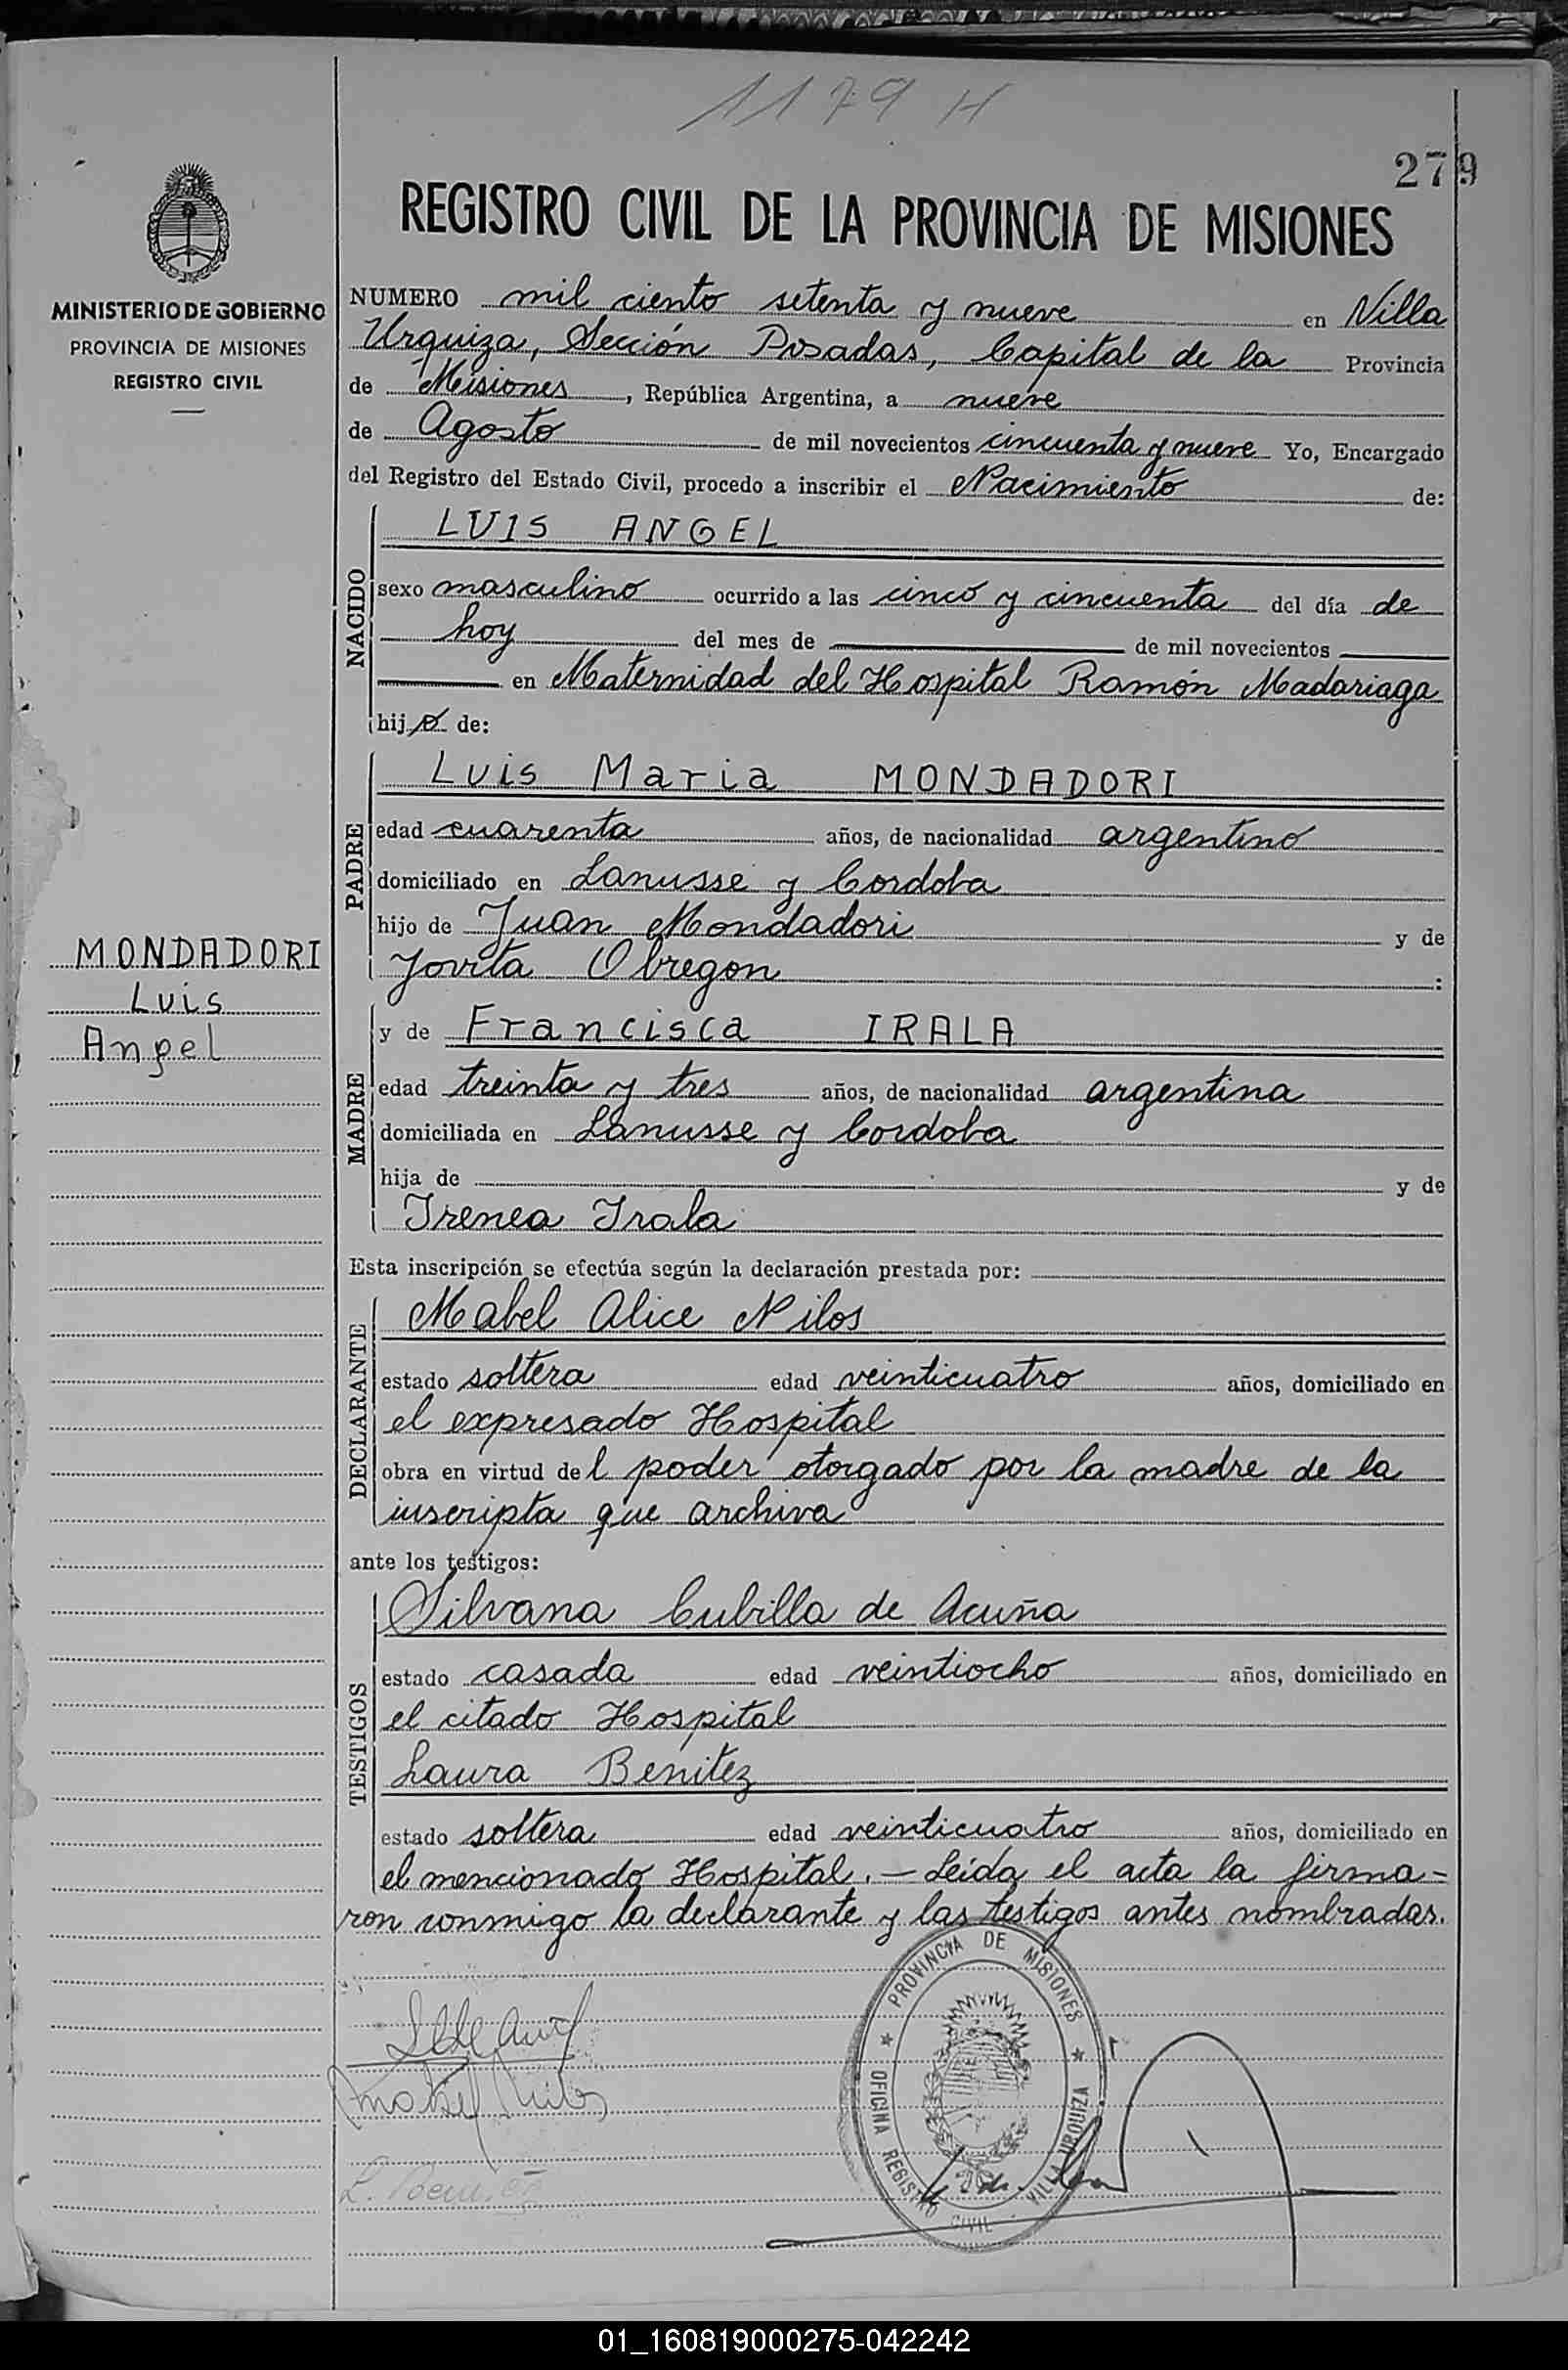 1179 H
279
REGISTRO CIVIL DE LA PROVINCIA DE MISIONES
MINISTERIO DE GOBIERNO
PROVINCIA DE MISIONES
REGISTRO CIVIL
NUMERO mil ciento setenta y nueve en Villa
Urquiza, Sección Posadas, Capital de la Provincia
de Misiones, República Argentina, a nueve
de Agosto de mil novecientos cincuenta y nueve Yo, Encargado
del Registro del Estado Civil, procedo a inscribir el Nacimiento de:
NACIDO
LUIS ANGEL
sexo masculino ocurrido a las cinco y cincuenta del día de
hoy del mes de de mil novecientos
en Maternidad del Hospital Ramón Madariaga
hijo de:
PADRE
Luis Maria MONDADORI
edad cuarenta años, de nacionalidad argentino
domiciliado en Lanusse y Cordoba
hijo de Juan Mondadori y de
Jovita Obregon :
MONDADORI
Luis
Angel
MADRE
y de Francisca IRALA
edad treinta y tres años, de nacionalidad argentina
domiciliada en Lanusse y Cordoba
hija de y de
Irenea Irala
Esta inscripción se efectúa según la declaración prestada por:
DECLARANTE
Mabel Alice Nilos
estado soltera edad veinticuatro años, domiciliado en
el expresado Hospital
obra en virtud del poder otorgado por la madre de la
inscripta que archiva
ante los testigos:
TESTIGOS
Silvana Cubilla de Acuña
estado casada edad veintiocho años, domiciliado en
el citado Hospital
Laura Benitez
estado soltera edad veinticuatro años, domiciliado en
el mencionado Hospital. — Leída el acta la firma=
ron conmigo la declarante y las testigos antes nombradas.
PROVINCIA DE MISIONES
OFICINA REGISTRO CIVIL VILLA URQUIZA
Mabel Nilos
L. Benitez
01_160819000275-042242